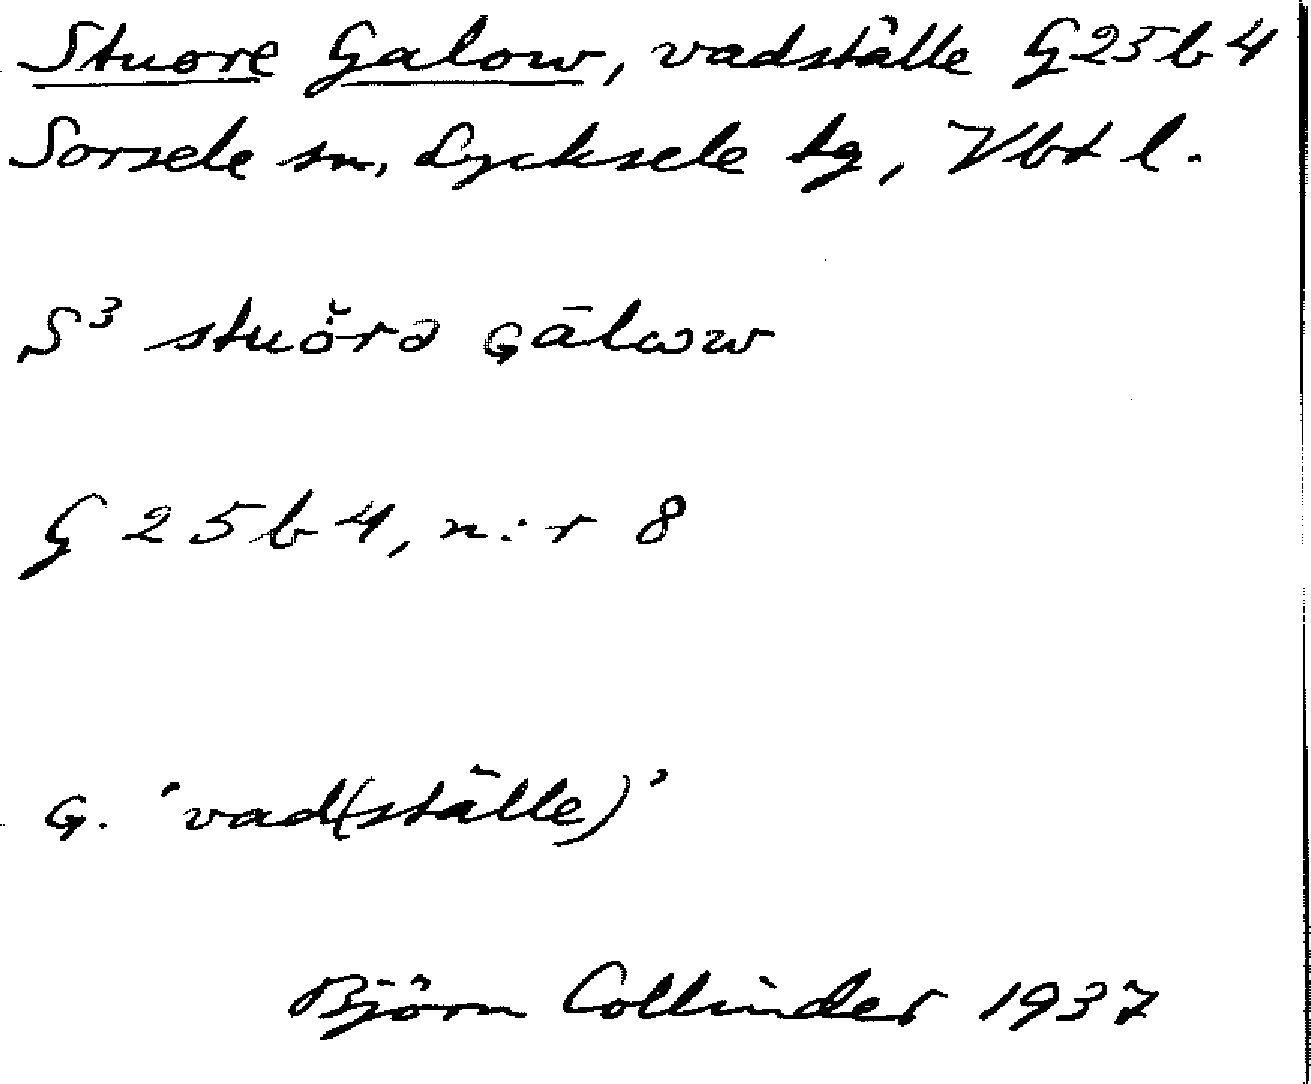 Stuore Galow, vadställe G25b4
Sorsele sn, Lycksele tg, Vbt l.
S³ stuŏ̈rə ɢālωw
G 25b4, n:r 8
G. 'vad(ställe)'
Björn Collinder 1937